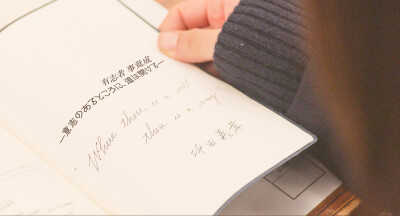 有志者 事竟成
―意志のあるところに、道は開ける―
Where there is a will
there is a way
坪田義孝